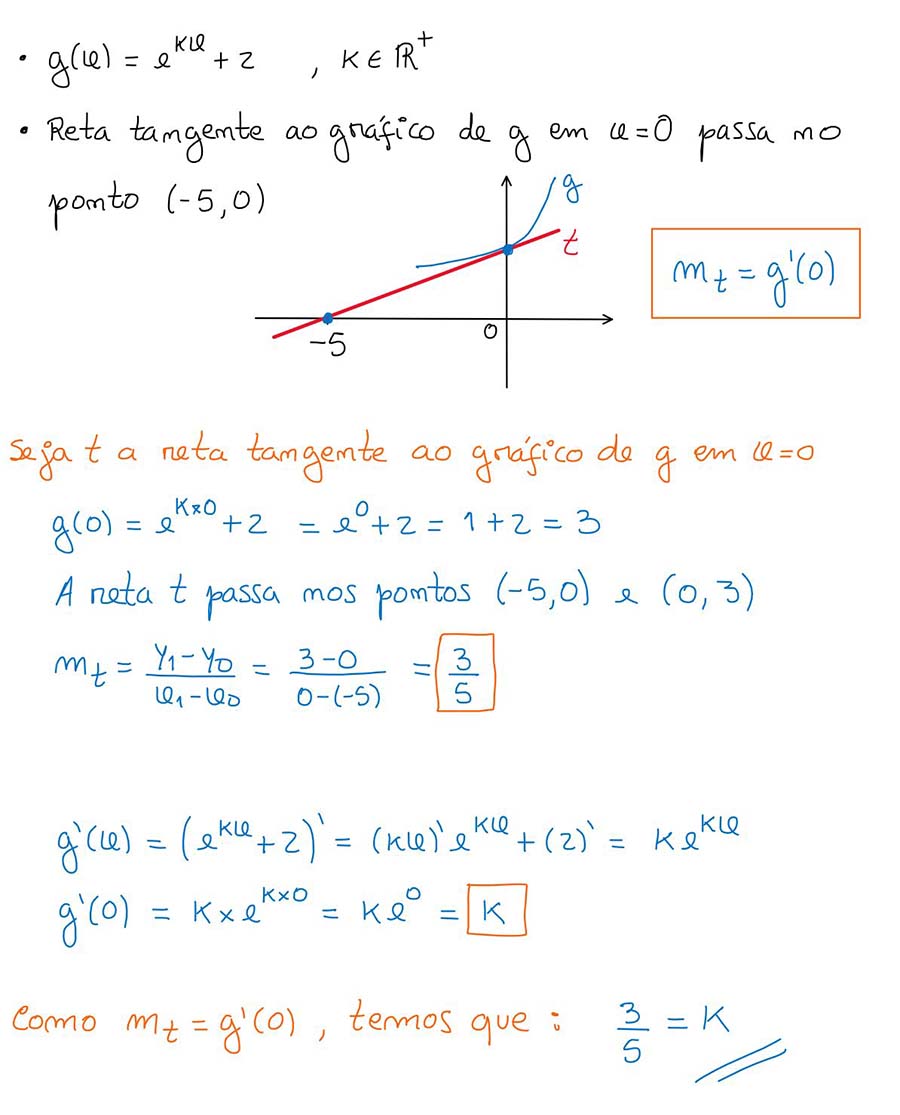 • g(x) = e^{kx} + 2 , k ∈ ℝ⁺
• Reta tangente ao gráfico de g em x = 0 passa no
ponto (-5,0)
g
t
m_t = g'(0)
0
-5
Seja t a reta tangente ao gráfico de g em x = 0
g(0) = e^{k×0} + 2 = e^0 + 2 = 1 + 2 = 3
A reta t passa nos pontos (-5,0) e (0,3)
m_t = \frac{y_1 - y_0}{x_1 - x_0} = \frac{3-0}{0-(-5)} = \frac{3}{5}
g'(x) = (e^{kx} + 2)' = (kx)' e^{kx} + (2)' = k e^{kx}
g'(0) = k × e^{k×0} = k e^0 = k
Como m_t = g'(0), temos que : \frac{3}{5} = k